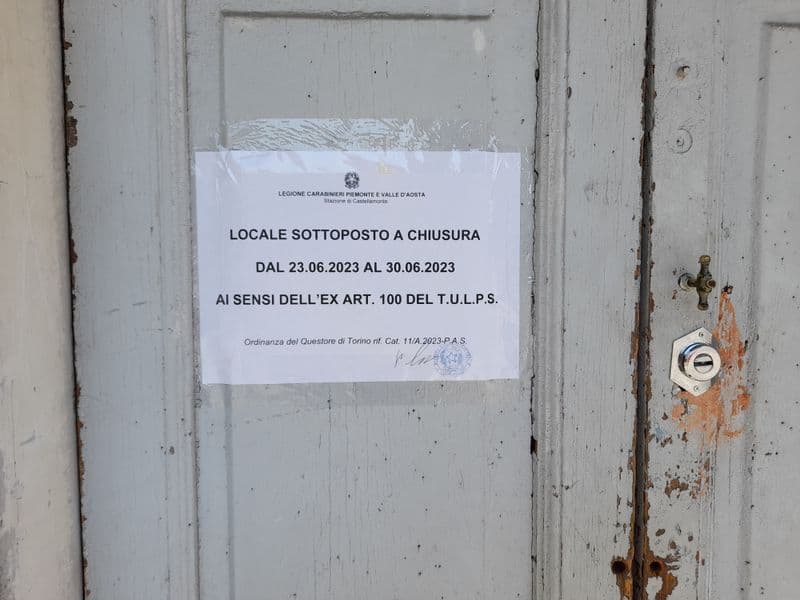 LEGIONE CARABINIERI PIEMONTE E VALLE D'AOSTA
Stazione di Castellamonte
LOCALE SOTTOPOSTO A CHIUSURA
DAL 23.06.2023 AL 30.06.2023
AI SENSI DELL'EX ART. 100 DEL T.U.L.P.S.
Ordinanza del Questore di Torino rif. Cat. 11/A.2023-P.A.S.